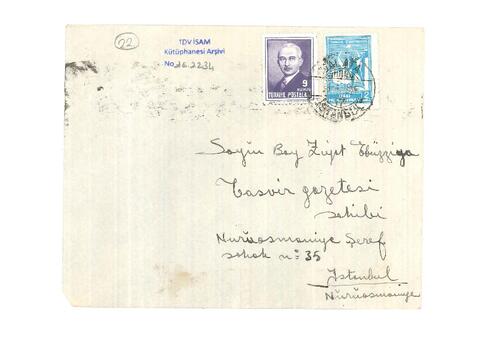 22
TDV İSAM
Kütüphanesi Arşivi
No 2E.2234
9
KURUŞ
TÜRKİYE POSTALARI
İSTANBUL
Sayın Bay Ziyat Ebüzziya
Tasvir gazetesi
sahibi
Nuruosmaniye Şeref
sokak nº 35
İstanbul
Nuruosmaniye